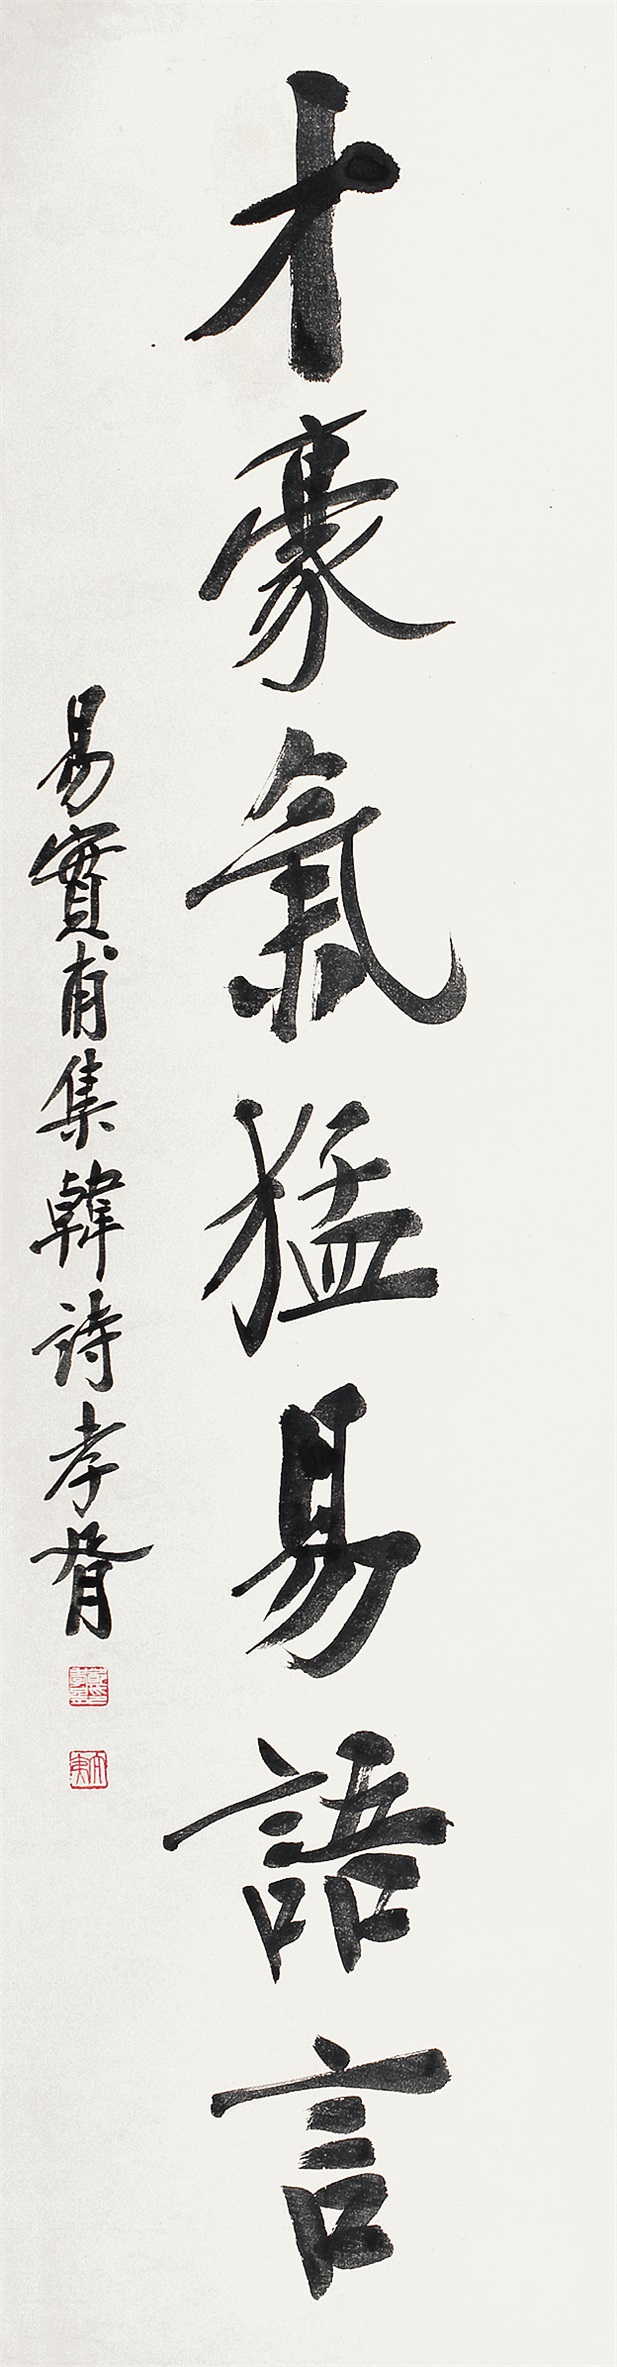 才豪氣猛易語言
易實甫集韓詩孝胥